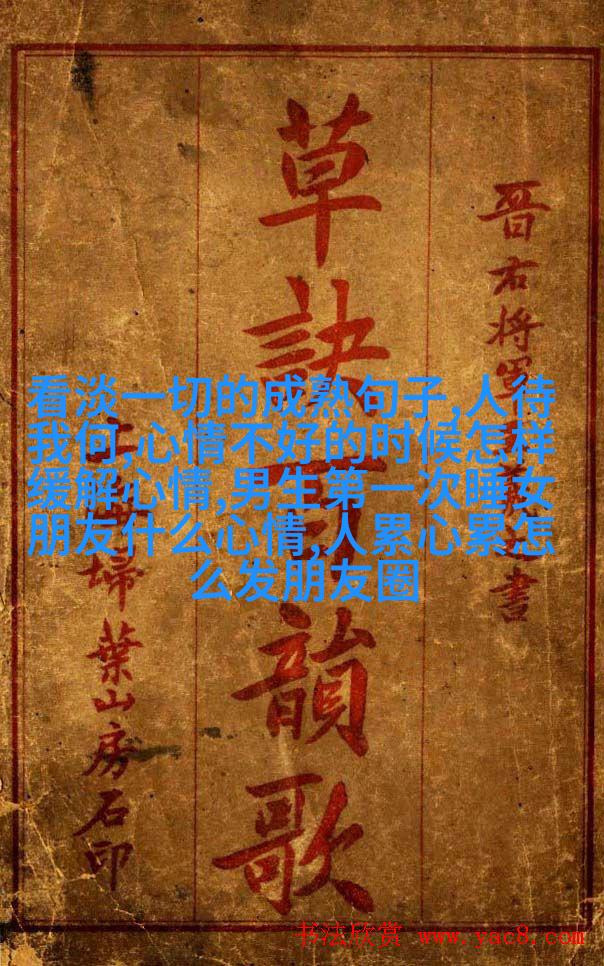 晋右将軍羲之書
草訣百韻歌
海埽葉山房石印
看淡一切的成熟句子,人待
我何,心情不好的时候怎样
缓解心情,男生第一次睡女
朋友什么心情,人累心累怎
么发朋友圈
书法欣赏 www.yac8.com